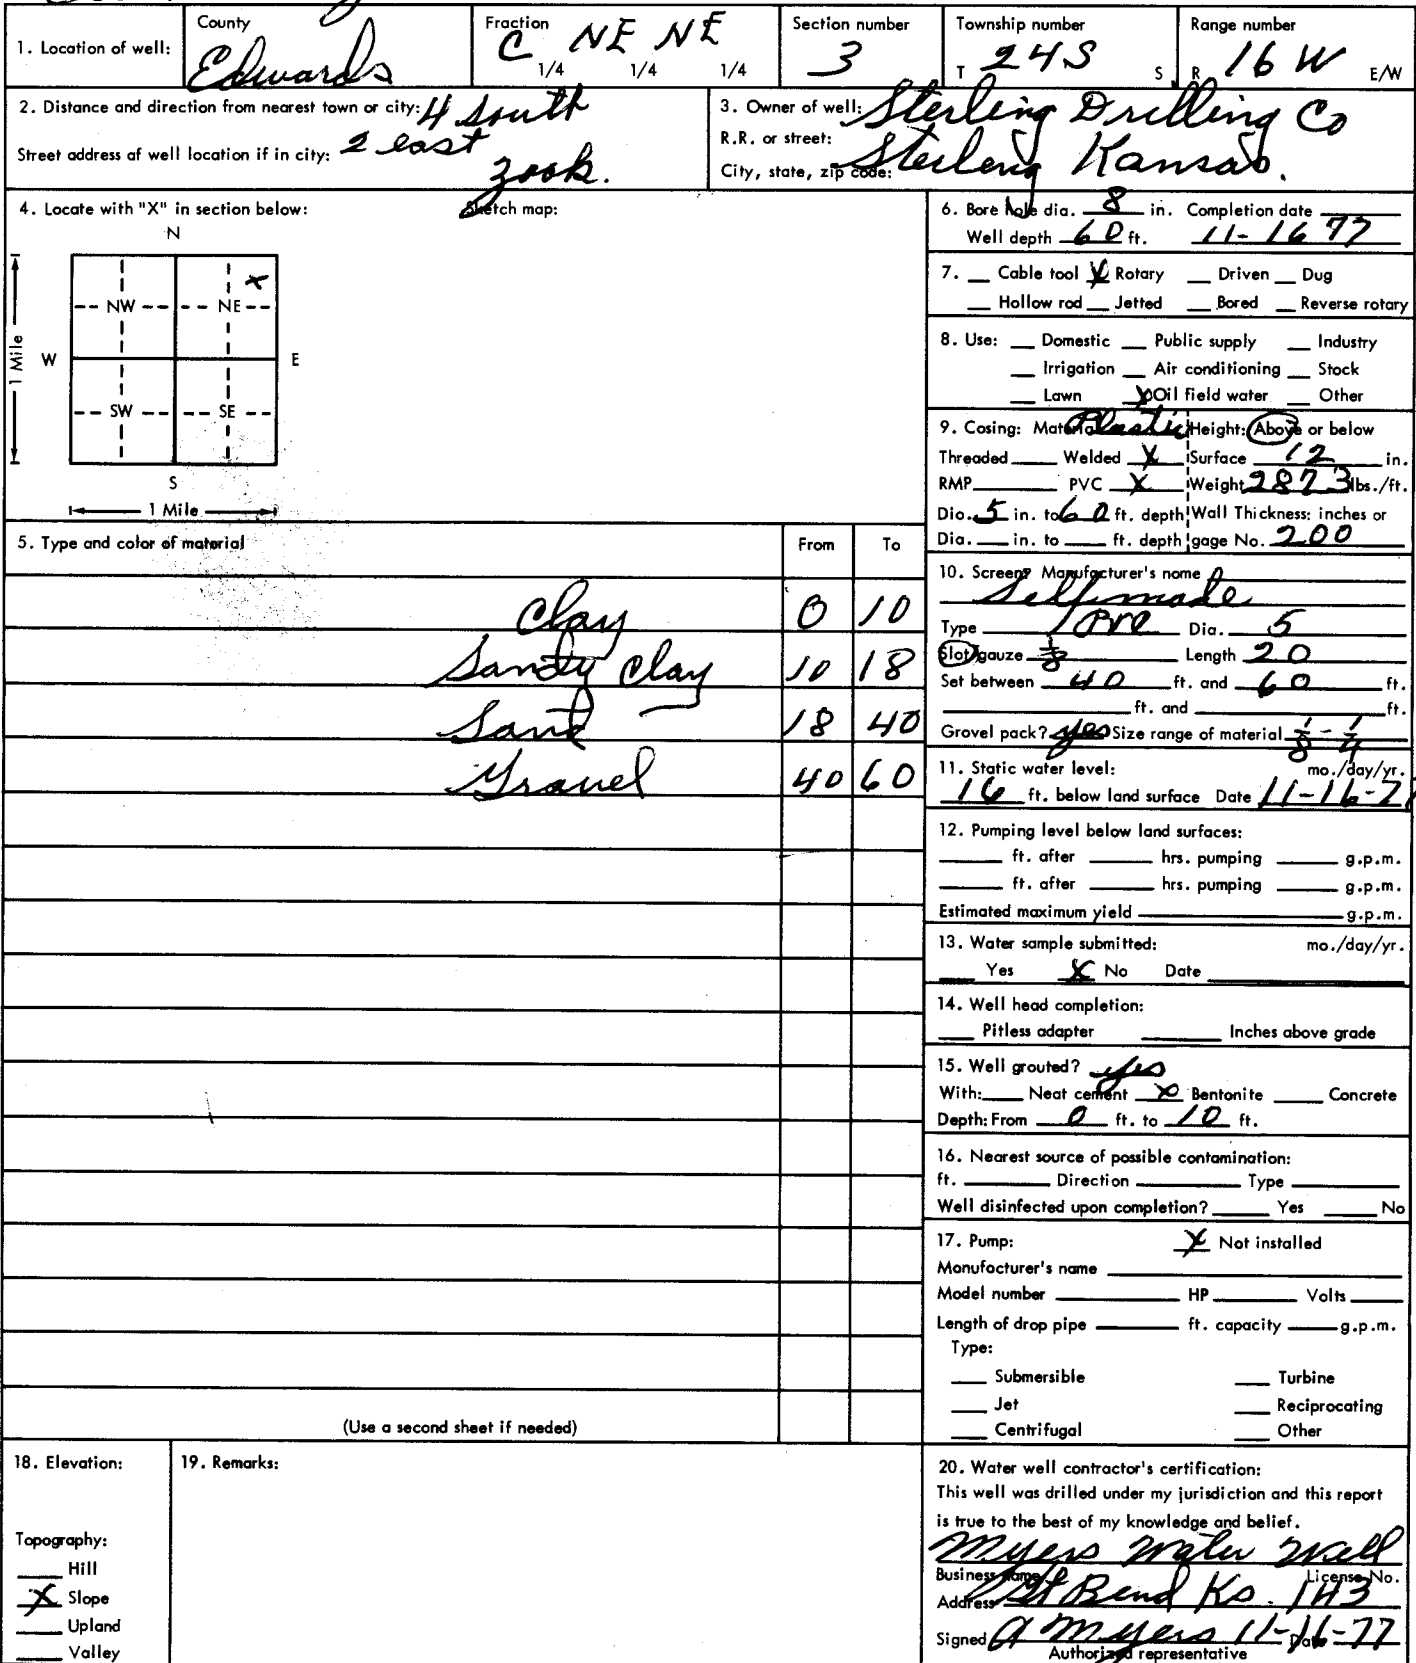 County
Fraction
Section number
Township number
Range number
1. Location of well:
Edwards
C NE NE
1/4 1/4 1/4
3
T 24S S
R 16 W E/W
2. Distance and direction from nearest town or city: 4 south
Street address of well location if in city: 2 east
Zook.
3. Owner of well: Sterling Drilling Co
R.R. or street:
City, state, zip code: Sterling Kansas.
4. Locate with "X" in section below:
Sketch map:
N
X
NW NE
W E
SW SE
S
1 Mile
1 Mile
5. Type and color of material From To
Clay 0 10
Sandy Clay 10 18
Sand 18 40
Gravel 40 60
(Use a second sheet if needed)
6. Bore hole dia. 8 in. Completion date
Well depth 60 ft. 11-16 77
7. Cable tool X Rotary Driven Dug
Hollow rod Jetted Bored Reverse rotary
8. Use: Domestic Public supply Industry
Irrigation Air conditioning Stock
Lawn X Oil field water Other
9. Casing: Material Plastic Height: Above or below
Threaded Welded X Surface 12 in.
RMP PVC X Weight 2873 lbs./ft.
Dia. 5 in. to 60 ft. depth Wall Thickness: inches or
Dia. in. to ft. depth gage No. 200
10. Screen: Manufacturer's name
Selfmade
Type PVC Dia. 5
Slot/gauze 1/8 Length 20
Set between 40 ft. and 60 ft.
ft. and ft.
Gravel pack? yes Size range of material 1/8 - 1/4
11. Static water level: mo./day/yr.
16 ft. below land surface Date 11-16-77
12. Pumping level below land surfaces:
ft. after hrs. pumping g.p.m.
ft. after hrs. pumping g.p.m.
Estimated maximum yield g.p.m.
13. Water sample submitted: mo./day/yr.
Yes X No Date
14. Well head completion:
Pitless adapter Inches above grade
15. Well grouted? yes
With: Neat cement X Bentonite Concrete
Depth: From 0 ft. to 10 ft.
16. Nearest source of possible contamination:
ft. Direction Type
Well disinfected upon completion? Yes No
17. Pump: X Not installed
Manufacturer's name
Model number HP Volts
Length of drop pipe ft. capacity g.p.m.
Type:
Submersible Turbine
Jet Reciprocating
Centrifugal Other
18. Elevation:
Topography:
Hill
X Slope
Upland
Valley
19. Remarks:
20. Water well contractor's certification:
This well was drilled under my jurisdiction and this report
is true to the best of my knowledge and belief.
Myers Water Well
Business name License No.
Address Gt Bend Ks. 143
Signed A Myers 11-16-77 Date
Authorized representative